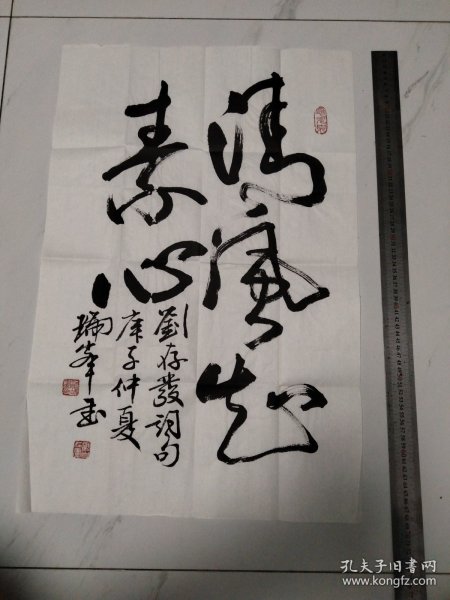 清風起
素心
劉存發詞句
庚子仲夏
瑞峯書
孔夫子旧书网
www.kongfz.com